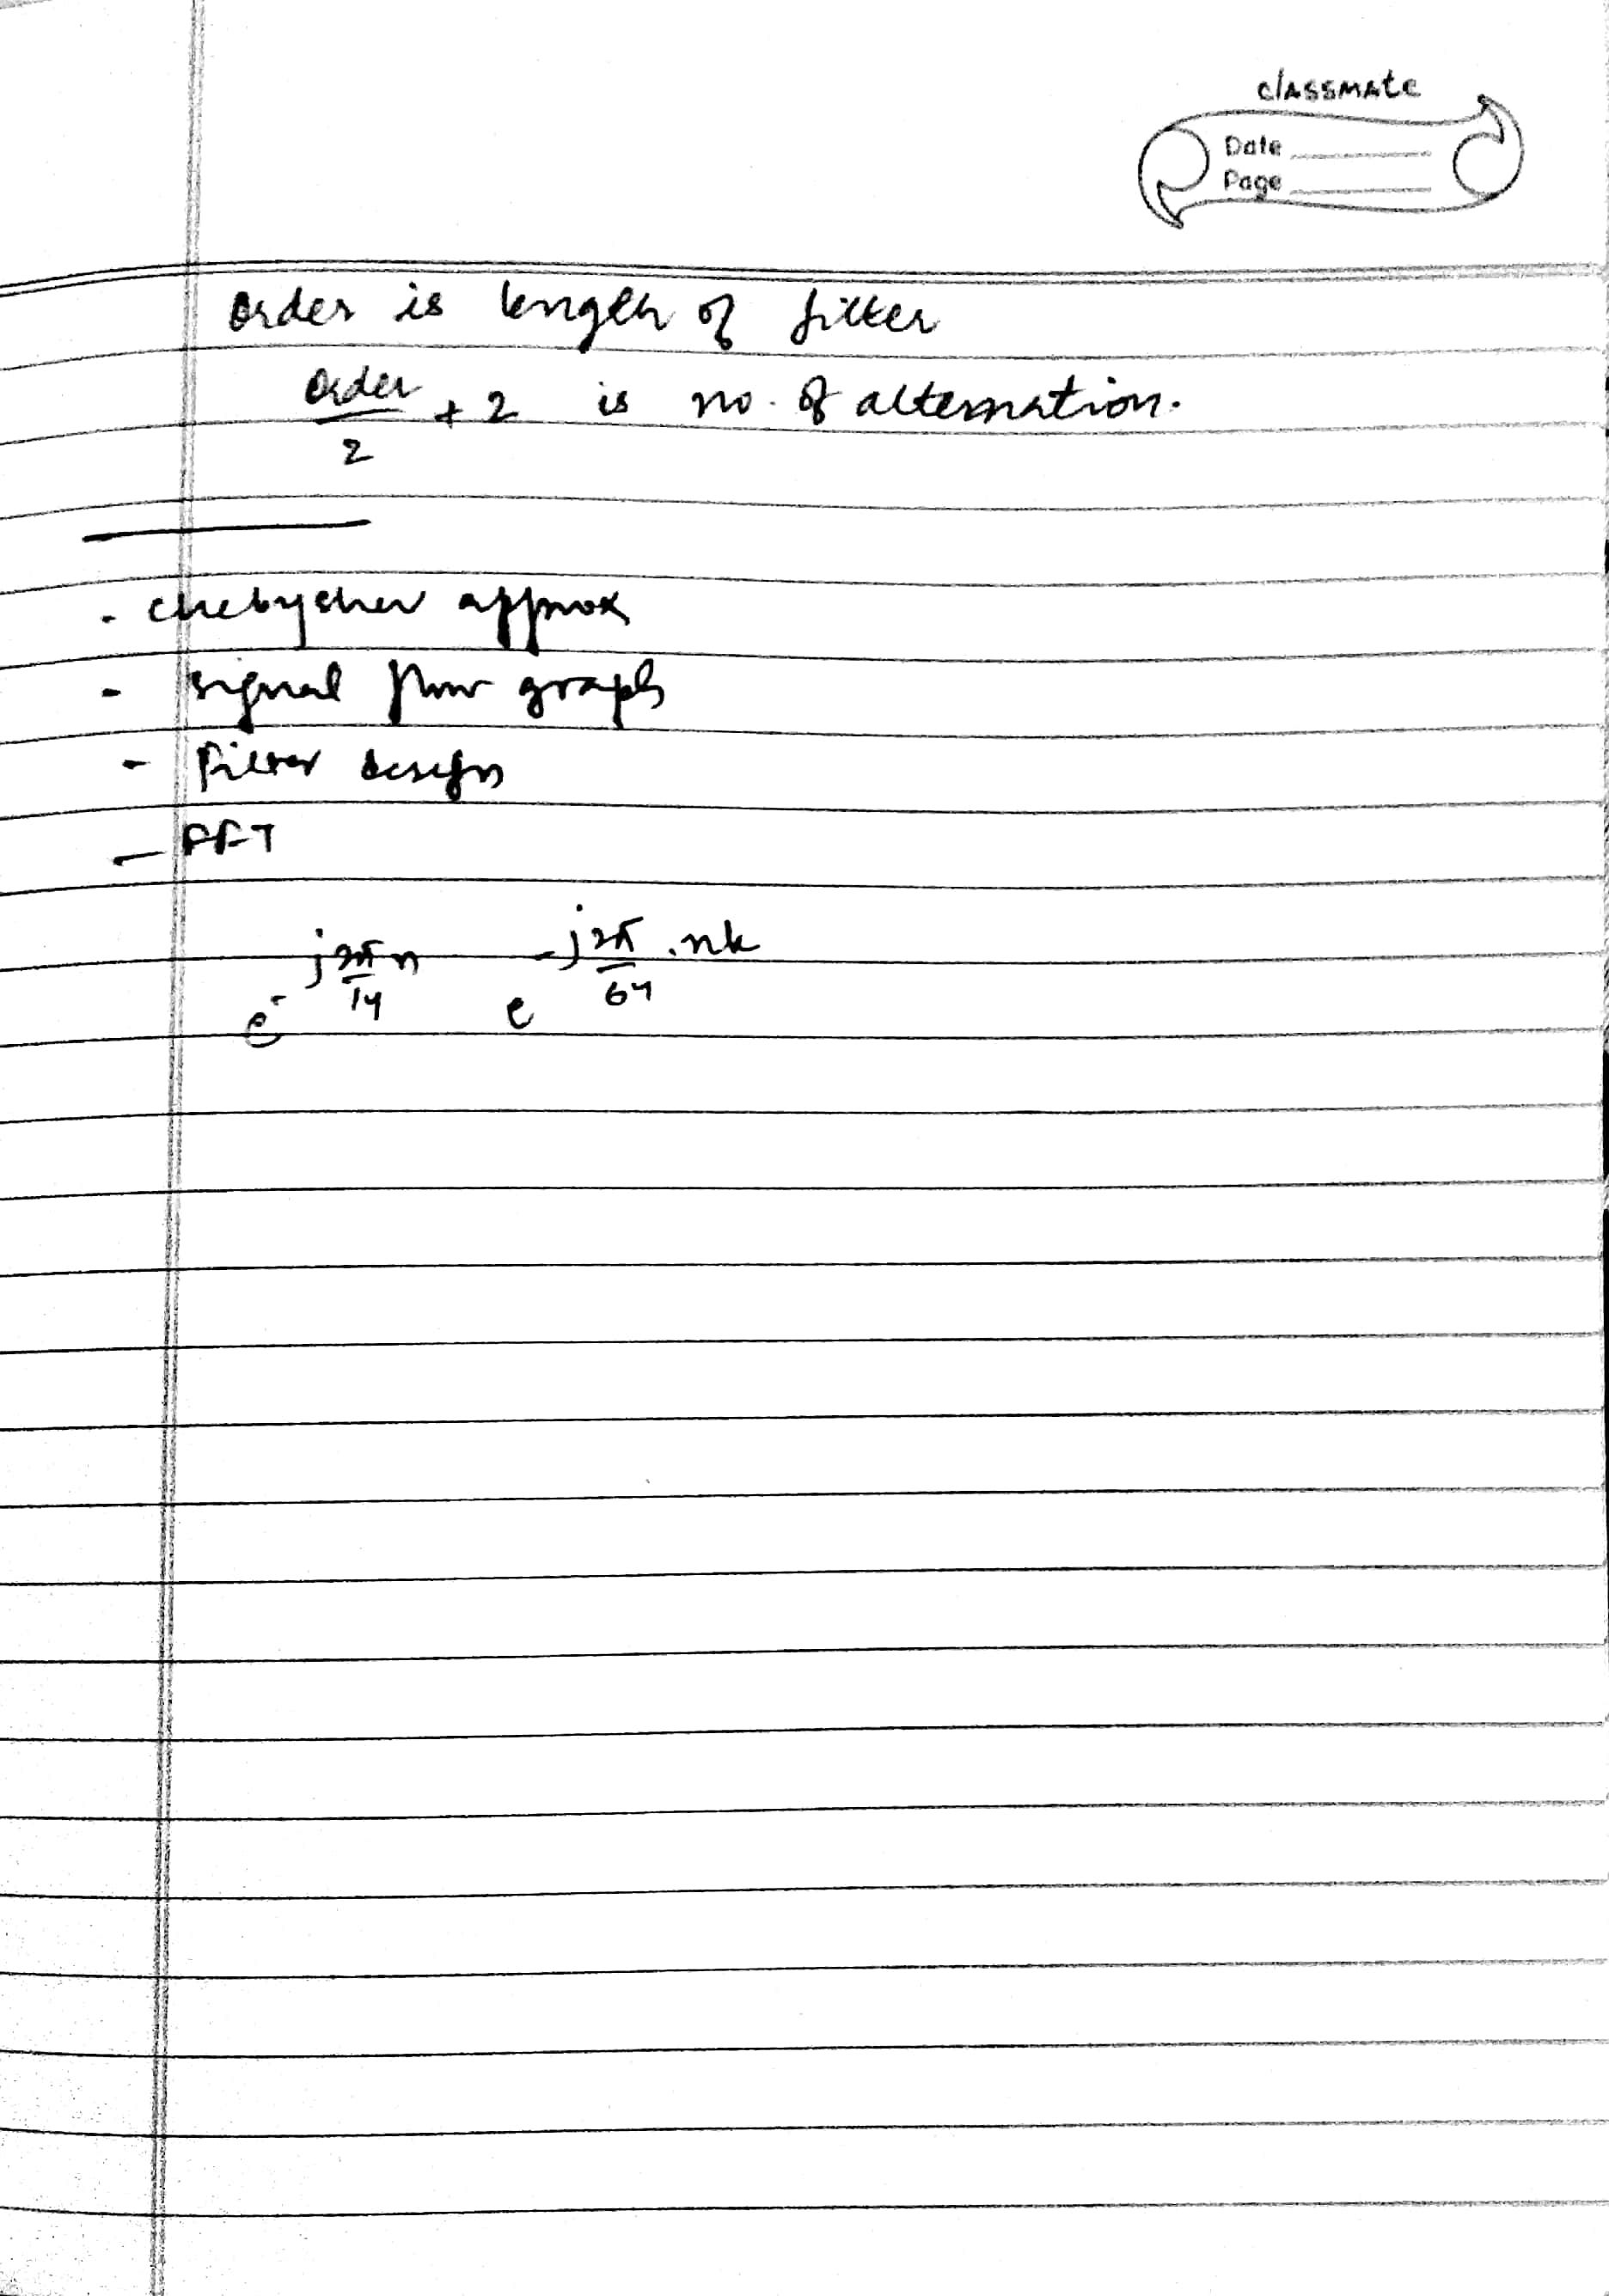 classmate
Date
Page
Order is length of filter
order/2 + 2 is no. of alternation.
- chebyshev approx
- signal flow graph
- filter design
- FFT
e^{-j 2π/14 n} e^{-j 2π/64 . nk}